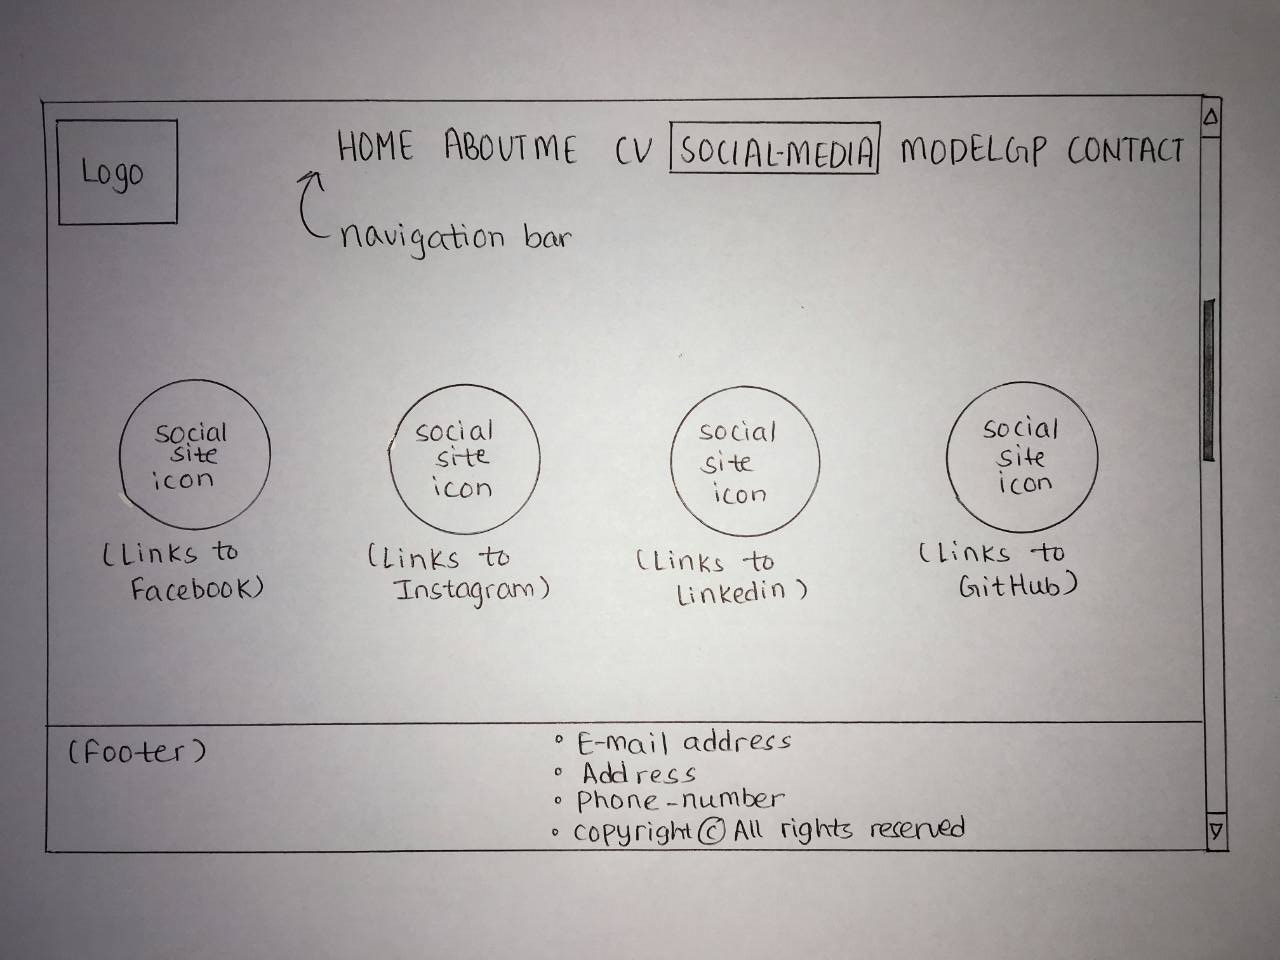 Logo
HOME ABOUTME CV SOCIAL-MEDIA MODELGP CONTACT
navigation bar
social
site
icon
(Links to
Facebook)
social
site
icon
(Links to
Instagram)
social
site
icon
(Links to
Linkedin)
social
site
icon
(Links to
GitHub)
(Footer)
E-mail address
Address
Phone-number
copyright © All rights reserved